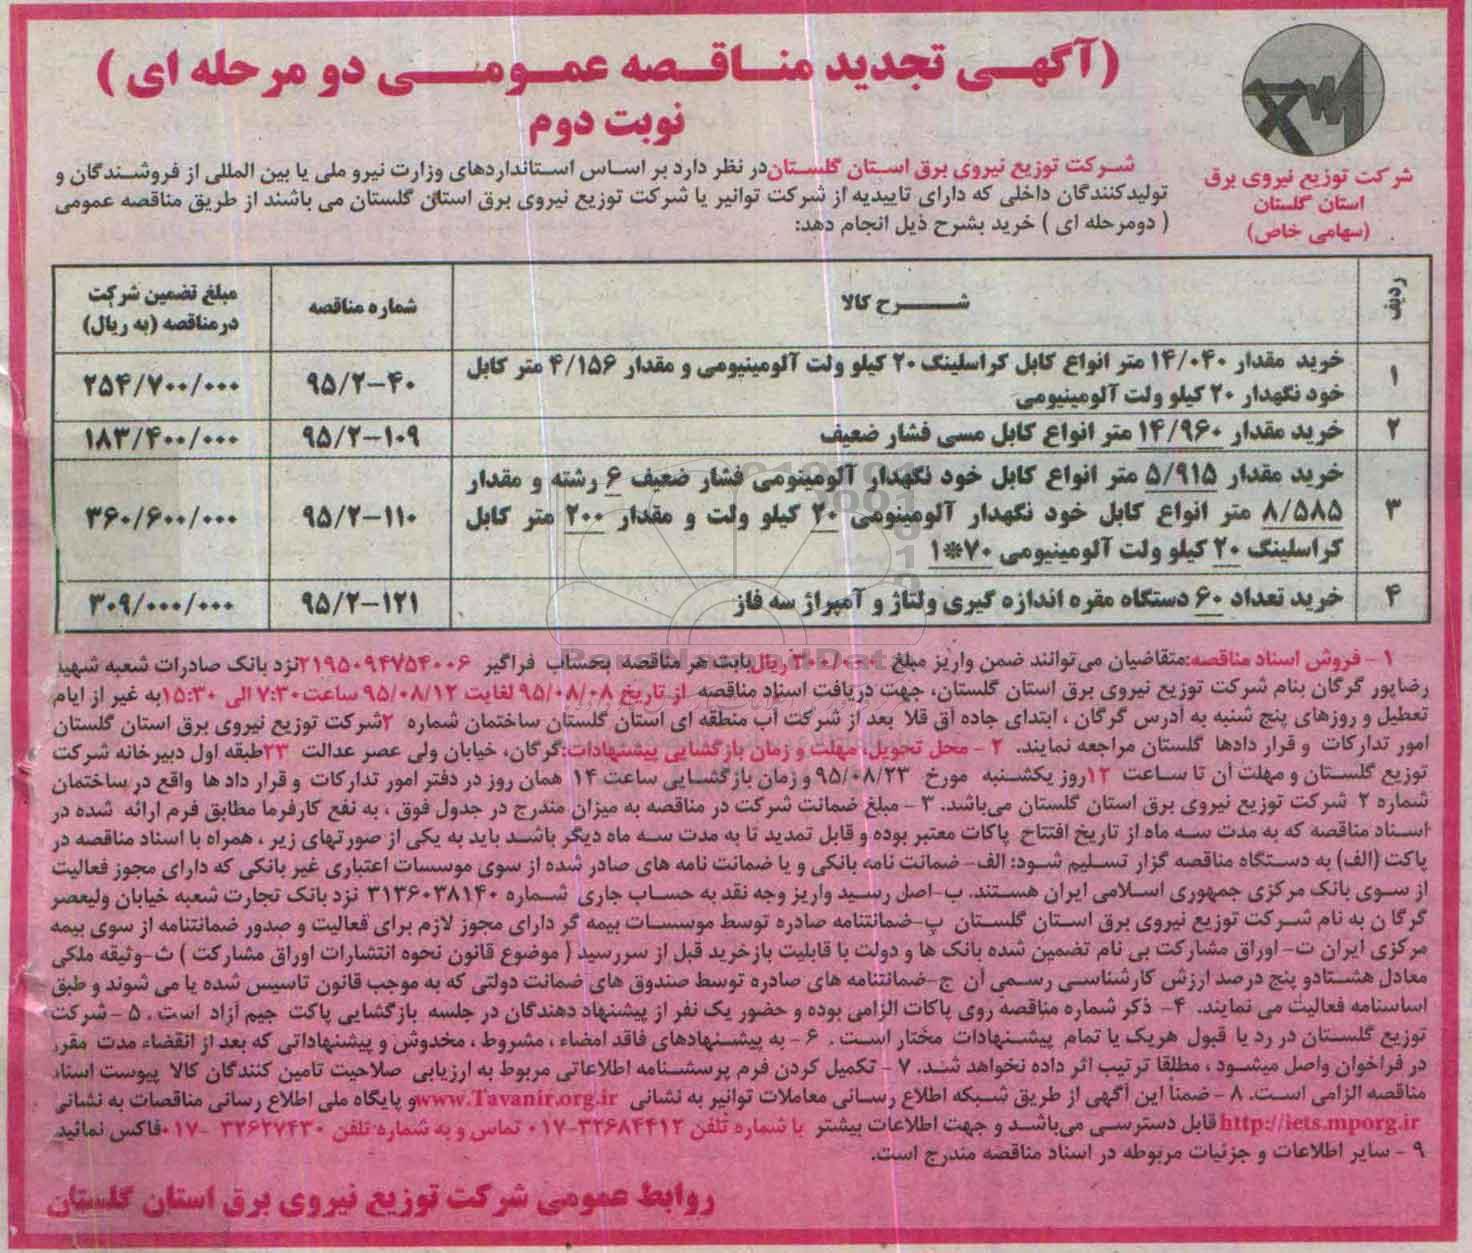 (آگهی تجدید مناقصه عمومی دو مرحله ای)
نوبت دوم
شرکت توزیع نیروی برق
استان گلستان
(سهامی خاص)
شرکت توزیع نیروی برق استان گلستان در نظر دارد بر اساس استانداردهای وزارت نیرو ملی یا بین المللی از فروشندگان و
تولیدکنندگان داخلی که دارای تاییدیه از شرکت توانیر یا شرکت توزیع نیروی برق استان گلستان می باشند از طریق مناقصه عمومی
( دومرحله ای ) خرید بشرح ذیل انجام دهد:
ردیف شرح کالا شماره مناقصه مبلغ تضمین شرکت در مناقصه (به ریال)
۱ خرید مقدار ۱۴/۰۴۰ متر انواع کابل کراسلینگ ۲۰ کیلو ولت آلومینیومی و مقدار ۴/۱۵۶ متر کابل
خود نگهدار ۲۰ کیلو ولت آلومینیومی ۹۵/۲-۴۰ ۲۵۴/۷۰۰/۰۰۰
۲ خرید مقدار ۱۴/۹۶۰ متر انواع کابل مسی فشار ضعیف ۹۵/۲-۱۰۹ ۱۸۳/۴۰۰/۰۰۰
۳ خرید مقدار ۵/۹۱۵ متر انواع کابل خود نگهدار آلومینومی فشار ضعیف ۶ رشته و مقدار
۸/۵۸۵ متر انواع کابل خود نگهدار آلومینومی ۲۰ کیلو ولت و مقدار ۲۰۰ متر کابل
کراسلینگ ۲۰ کیلو ولت آلومینیومی ۷۰*۱ ۹۵/۲-۱۱۰ ۳۶۰/۶۰۰/۰۰۰
۴ خرید تعداد ۶۰ دستگاه مقره اندازه گیری ولتاژ و آمپراژ سه فاز ۹۵/۲-۱۲۱ ۳۰۹/۰۰۰/۰۰۰
۱- فروش اسناد مناقصه: متقاضیان می‌توانند ضمن واریز مبلغ ۳۰۰/۰۰۰ ریال بابت هر مناقصه بحساب فراگیر ۲۱۹۵۰۹۴۷۵۴۰۰۶ نزد بانک صادرات شعبه شهید
رضاپور گرگان بنام شرکت توزیع نیروی برق استان گلستان، جهت دریافت اسناد مناقصه از تاریخ ۹۵/۰۸/۰۸ لغایت ۹۵/۰۸/۱۲ ساعت ۷:۳۰ الی ۱۵:۳۰ به غیر از ایام
تعطیل و روزهای پنج شنبه به آدرس گرگان ، ابتدای جاده آق قلا بعد از شرکت آب منطقه ای استان گلستان ساختمان شماره ۲ شرکت توزیع نیروی برق استان گلستان
امور تدارکات و قرار دادها گلستان مراجعه نمایند. ۲ - محل تحویل، مهلت و زمان بازگشایی پیشنهادات: گرگان، خیابان ولی عصر عدالت ۲۳ طبقه اول دبیرخانه شرکت
توزیع گلستان و مهلت آن تا ساعت ۱۲ روز یکشنبه مورخ ۹۵/۰۸/۲۳ و زمان بازگشایی ساعت ۱۴ همان روز در دفتر امور تدارکات و قرار داد ها واقع در ساختمان
شماره ۲ شرکت توزیع نیروی برق استان گلستان می‌باشد. ۳ - مبلغ ضمانت شرکت در مناقصه به میزان مندرج در جدول فوق ، به نفع کارفرما مطابق فرم ارائه شده در
اسناد مناقصه که به مدت سه ماه از تاریخ افتتاح پاکات معتبر بوده و قابل تمدید تا به مدت سه ماه دیگر باشد باید به یکی از صورتهای زیر ، همراه با اسناد مناقصه در
پاکت (الف) به دستگاه مناقصه گزار تسلیم شود: الف- ضمانت نامه بانکی و یا ضمانت نامه های صادر شده از سوی موسسات اعتباری غیر بانکی که دارای مجوز فعالیت
از سوی بانک مرکزی جمهوری اسلامی ایران هستند. ب-اصل رسید واریز وجه نقد به حساب جاری شماره ۳۱۳۶۰۳۸۱۴۰ نزد بانک تجارت شعبه خیابان ولیعصر
گرگا ن به نام شرکت توزیع نیروی برق استان گلستان پ-ضمانتنامه صادره توسط موسسات بیمه گر دارای مجوز لازم برای فعالیت و صدور ضمانتنامه از سوی بیمه
مرکزی ایران ت- اوراق مشارکت بی نام تضمین شده بانک ها و دولت با قابلیت بازخرید قبل از سررسید ( موضوع قانون نحوه انتشارات اوراق مشارکت ) ث-وثیقه ملکی
معادل هشتادو پنج درصد ارزش کارشناسی رسمی آن ج-ضمانتنامه های صادره توسط صندوق های ضمانت دولتی که به موجب قانون تاسیس شده یا می شوند و طبق
اساسنامه فعالیت می نمایند. ۴- ذکر شماره مناقصه روی پاکات الزامی بوده و حضور یک نفر از پیشنهاد دهندگان در جلسه بازگشایی پاکت جیم آزاد است . ۵ - شرکت
توزیع گلستان در رد یا قبول هریک یا تمام پیشنهادات مختار است . ۶ - به پیشنهادهای فاقد امضاء ، مشروط ، مخدوش و پیشنهاداتی که بعد از انقضاء مدت مقرر
در فراخوان واصل میشود ، مطلقا ترتیب اثر داده نخواهد شد. ۷ - تکمیل کردن فرم پرسشنامه اطلاعاتی مربوط به ارزیابی صلاحیت تامین کنندگان کالا پیوست اسناد
مناقصه الزامی است. ۸ - ضمناً این آگهی از طریق شبکه اطلاع رسانی معاملات توانیر به نشانی www.Tavanir.org.ir و پایگاه ملی اطلاع رسانی مناقصات به نشانی
http://iets.mporg.ir قابل دسترسی می‌باشد و جهت اطلاعات بیشتر با شماره تلفن ۳۲۶۸۴۴۱۲-۰۱۷ تماس و به شماره تلفن ۳۲۶۲۷۴۳۰ -۰۱۷ فاکس نمائید.
۹ - سایر اطلاعات و جزئیات مربوطه در اسناد مناقصه مندرج است.
روابط عمومی شرکت توزیع نیروی برق استان گلستان